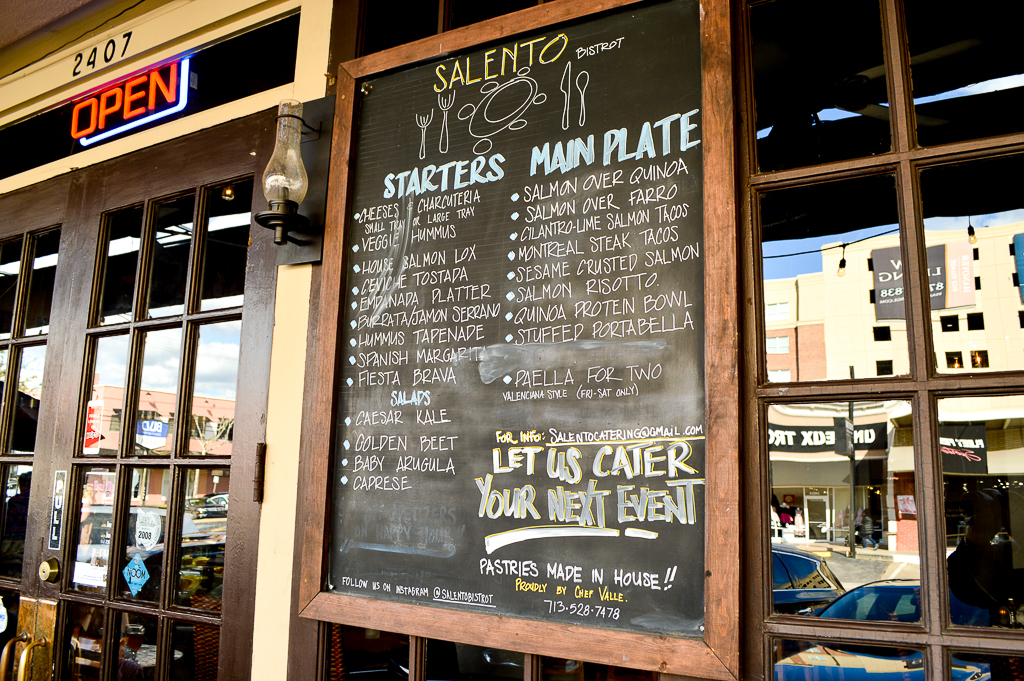 2407
OPEN
SALENTO BISTROT
STARTERS
• CHEESES & CHARCUTERIA
SMALL TRAY OR LARGE TRAY
VEGGIE HUMMUS
• HOUSE SALMON LOX
• CEVICHE TOSTADA
• EMPANADA PLATTER
• BURRATA/JAMON SERRANO
• HUMMUS TAPENADE
• SPANISH MARGARIT
• FIESTA BRAVA
SALADS
• CAESAR KALE
• GOLDEN BEET
• BABY ARUGULA
• CAPRESE
MAIN PLATE
• SALMON OVER QUINOA
• SALMON OVER FARRO
• CILANTRO-LIME SALMON TACOS
• MONTREAL STEAK TACOS
• SESAME CRUSTED SALMON
• SALMON RISOTTO.
• QUINOA PROTEIN BOWL
• STUFFED PORTABELLA
• PAELLA FOR TWO
VALENCIANA STYLE (FRI-SAT ONLY)
FOR INFO: SALENTOCATERING@GMAIL.COM
LET US CATER
YOUR NEXT EVENT
PASTRIES MADE IN HOUSE!!
PROUDLY BY CHEF VALLE.
713-528-7478
FOLLOW US ON INSTAGRAM @SALENTOBISTROT
PULL
2008